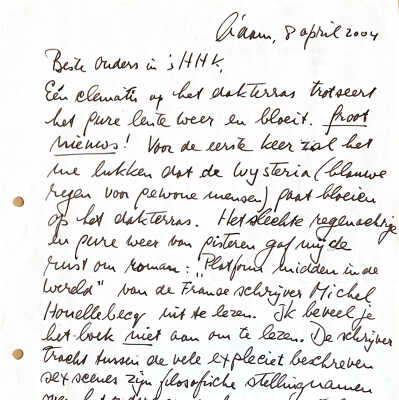 A'dam, 8 april 2004
Beste ouders in 'sHHK,
Eén clematis op het dakterras trotseert
het pure lente weer en bloeit. Groot
nieuws! Voor de eerste keer zal het
me lukken dat de wysteria (blauwe
regen voor gewone mensen) gaat bloeien
op het dakterras. Het slechte regenachtige
en pure weer van gisteren gaf mij de
rust om roman: "Platform midden in de
wereld" van de Franse schrijver Michel
Houellebecq uit te lezen. Ik beveel je
het boek niet aan om te lezen. De schrijver
tracht tussen de vele expliciet beschreven
sexscenes zijn filosofische stellingnamen